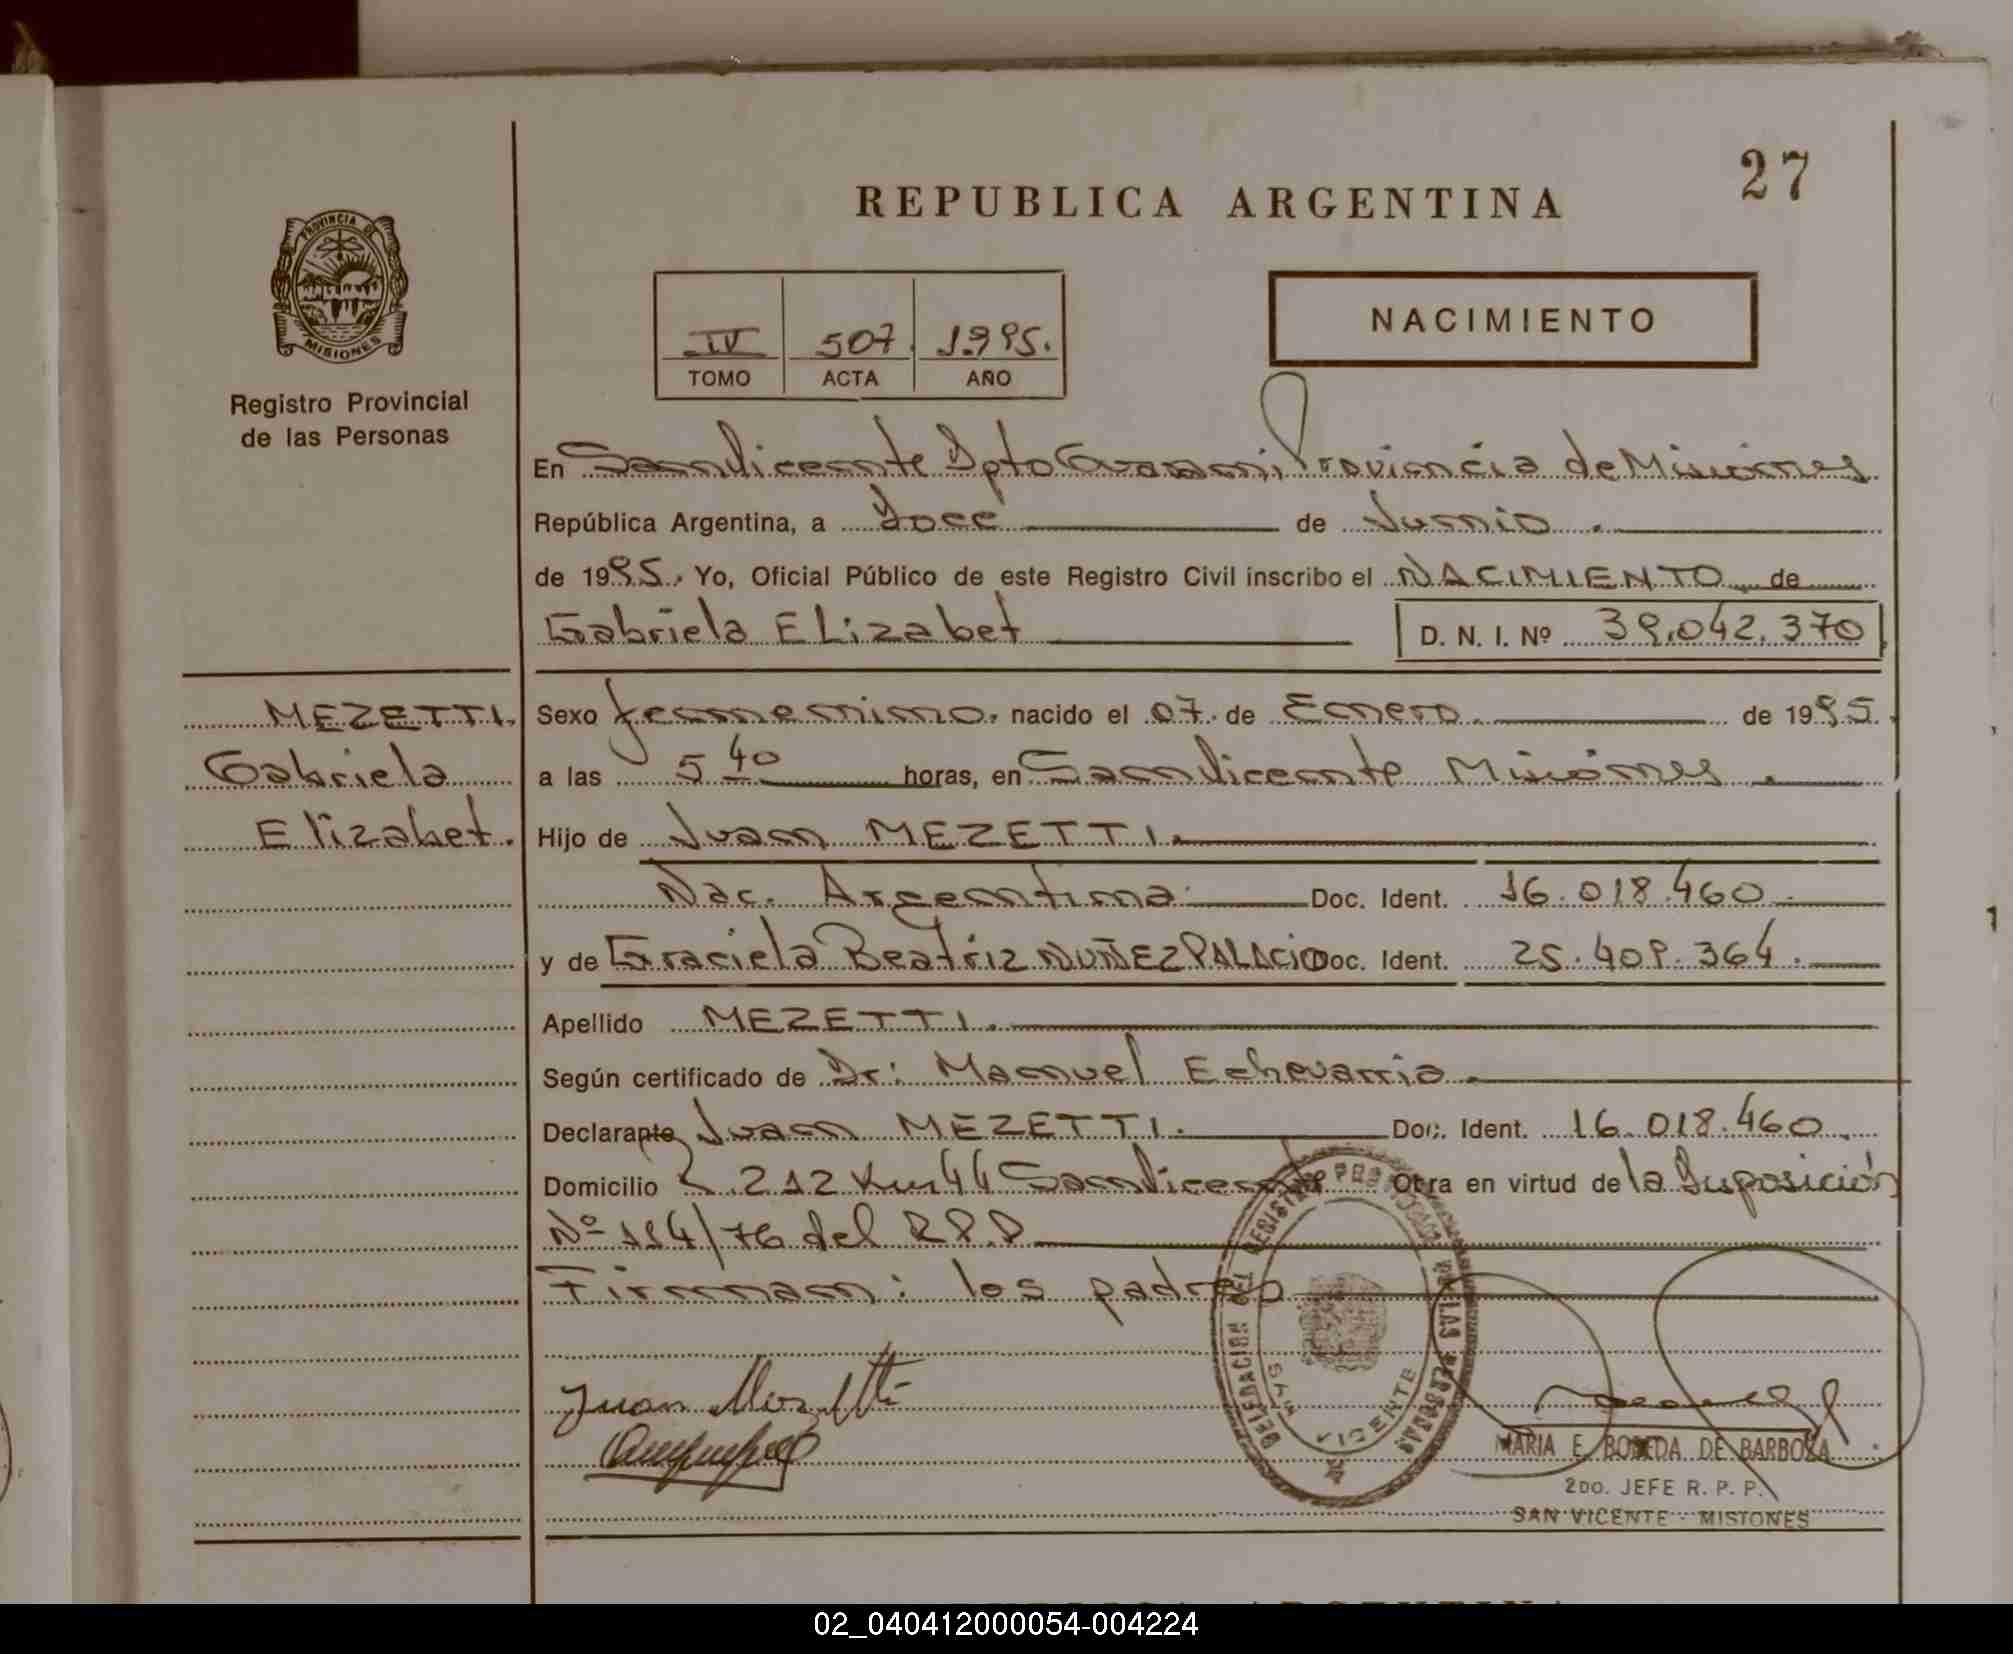 27
REPUBLICA ARGENTINA
PROVINCIA DE
MISIONES
Registro Provincial
de las Personas
NACIMIENTO
IV 507 1995.
TOMO ACTA AÑO
En San Vicente Dpto Guarani, Provincia de Misiones
República Argentina, a Doce de Junio.
de 1995. Yo, Oficial Público de este Registro Civil inscribo el NACIMIENTO de
Gabriela ELizabet D. N. I. Nº 39.042.370
MEZETTI. Sexo femenino. nacido el 07. de Enero. de 1995.
Gabriela a las 5 40 horas, en San Vicente Misiones.
Elizabet. Hijo de Juan MEZETTI.
Nac. Argentina Doc. Ident. 16.018.460
y de Graciela Beatriz NUÑEZ PALACIO Doc. Ident. 25.409.364.
Apellido MEZETTI.
Según certificado de Dr: Manuel Echevarria.
Declarante Juan MEZETTI. Doc. Ident. 16.018.460.
Domicilio 212 Km 44 San Vicente Obra en virtud de la Disposición
Nº 114/76 del R.P.P
Firman: los padres
DELEGACION DEL REGISTRO PROVINCIAL DE LAS PERSONAS
SAN VICENTE
Juan Mezetti
MARIA E. BOBEDA DE BARBOZA
2DO. JEFE R. P. P.
SAN VICENTE - MISIONES
02_040412000054-004224